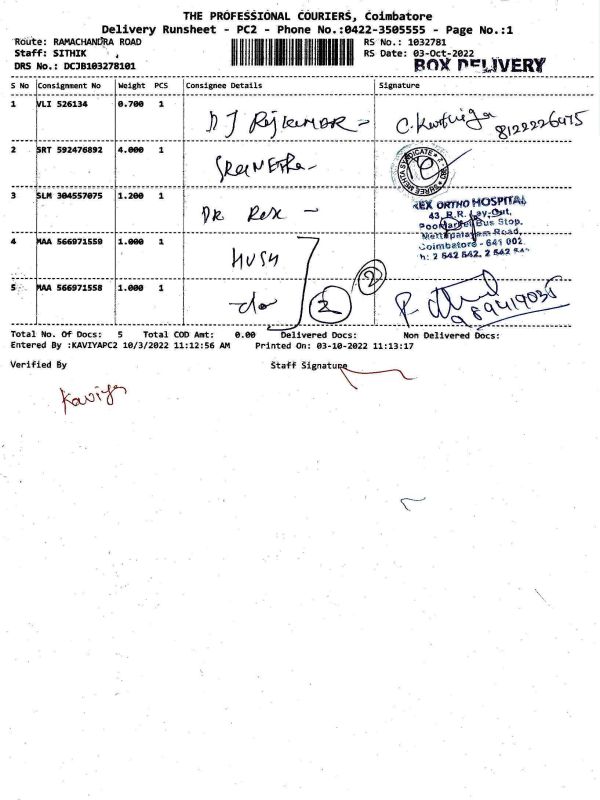 THE PROFESSIONAL COURIERS, Coimbatore
Delivery Runsheet - PC2 - Phone No.:0422-3505555 - Page No.:1
Route: RAMACHANDRA ROAD
RS No.: 1032781
Staff: SITHIK
RS Date: 03-Oct-2022
DRS No.: DCJB103278101
BOX DELIVERY
S No Consignment No Weight PCS Consignee Details Signature
1 VLI 526134 0.700 1
2 SRT 592476892 4.000 1
SHREE MEHTA SYNDICATE
3 SLM 304557075 1.200 1 DR Rex -
REX ORTHO HOSPITAL
43, R.R. Lay-Out,
Bus Stop,
Mettupalayam Road,
Coimbatore - 641 002
Ph: 2 542 542, 2 542
4 MAA 566971559 1.000 1 HUSH
2
5 MAA 566971558 1.000 1 -do- 2
Total No. Of Docs: 5 Total COD Amt: 0.00 Delivered Docs: Non Delivered Docs:
Entered By :KAVIYAPC2 10/3/2022 11:12:56 AM Printed On: 03-10-2022 11:13:17
Verified By Staff Signature
Kaviya